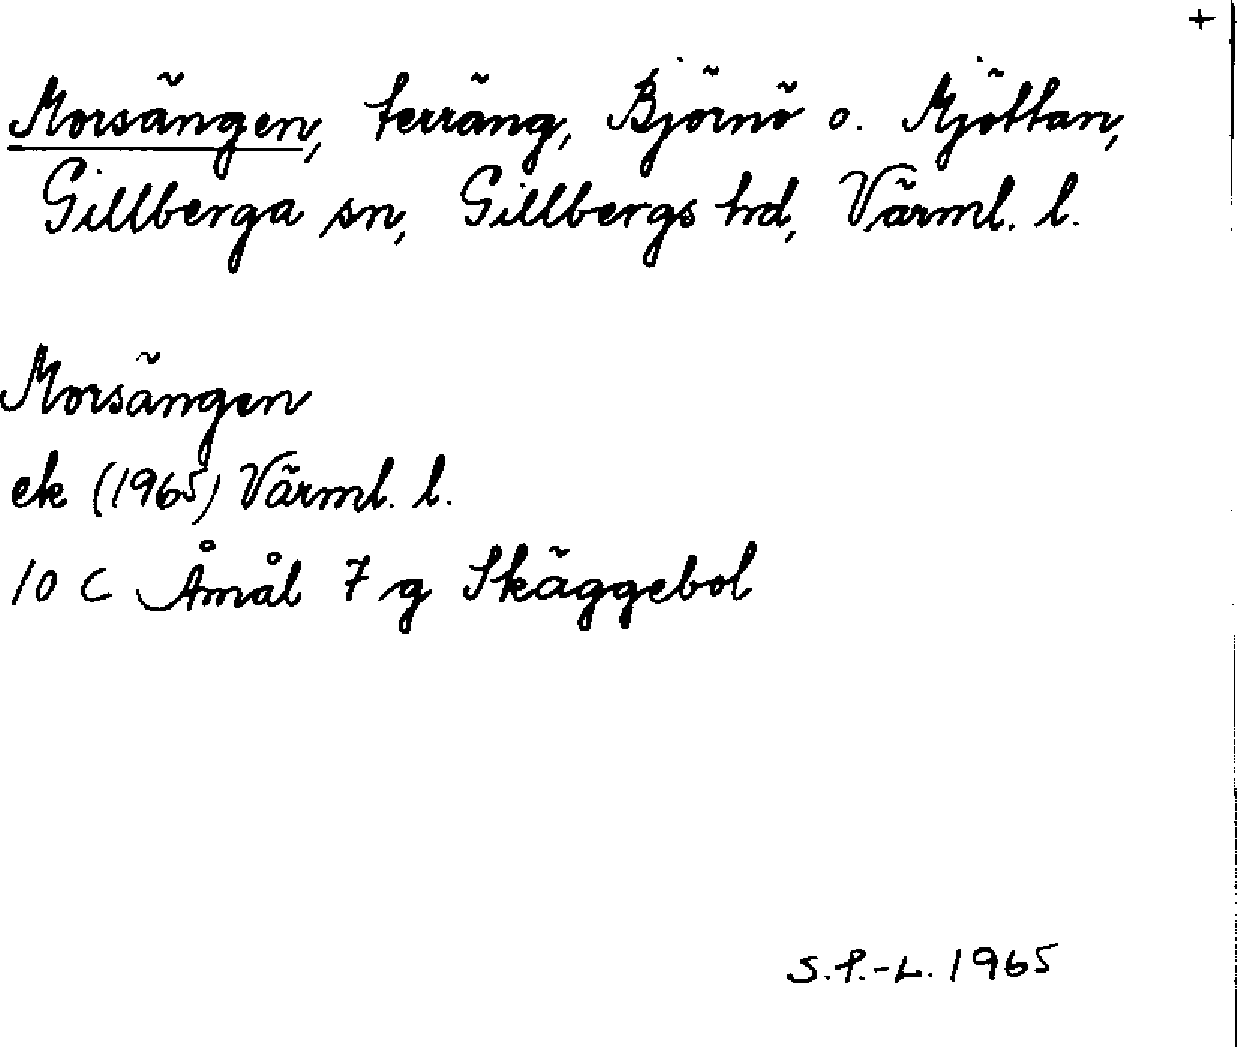 +
Morsängen, terräng, Björnö o. Mjöttan,
Gillberga sn, Gillbergs hd, Värml. l.
Morsängen
ek (1965) Värml. l.
10 C Åmål 7 g Skäggebol
S.P.-L. 1965